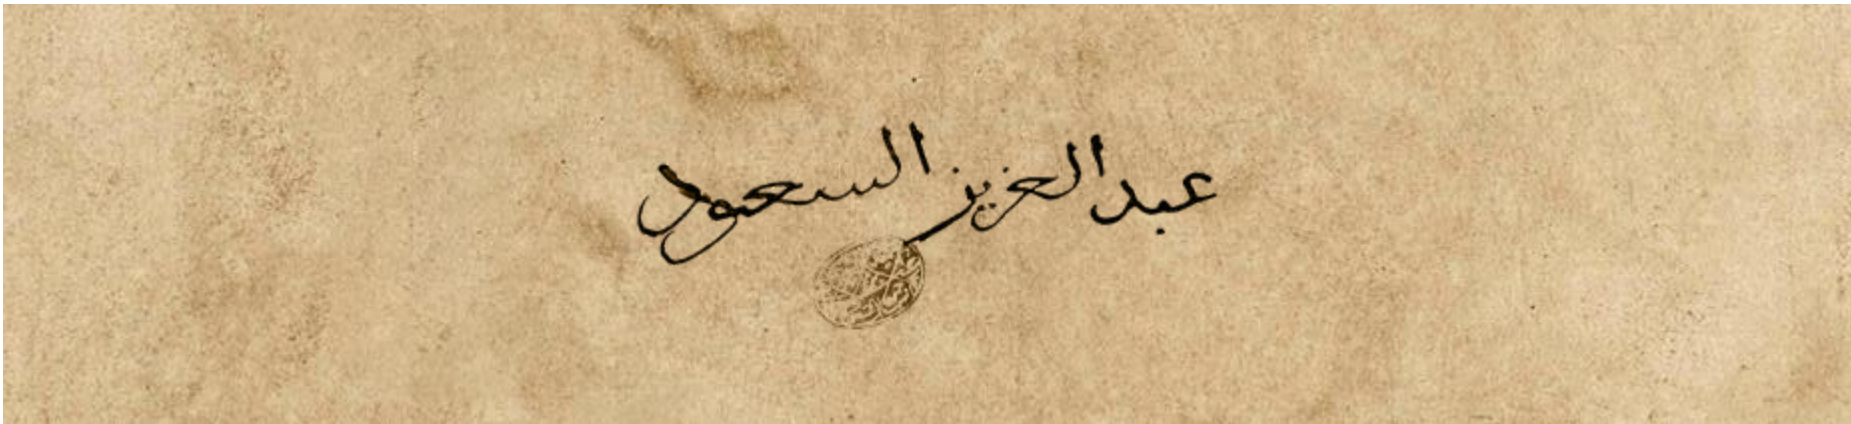 عبد العزيز السعود